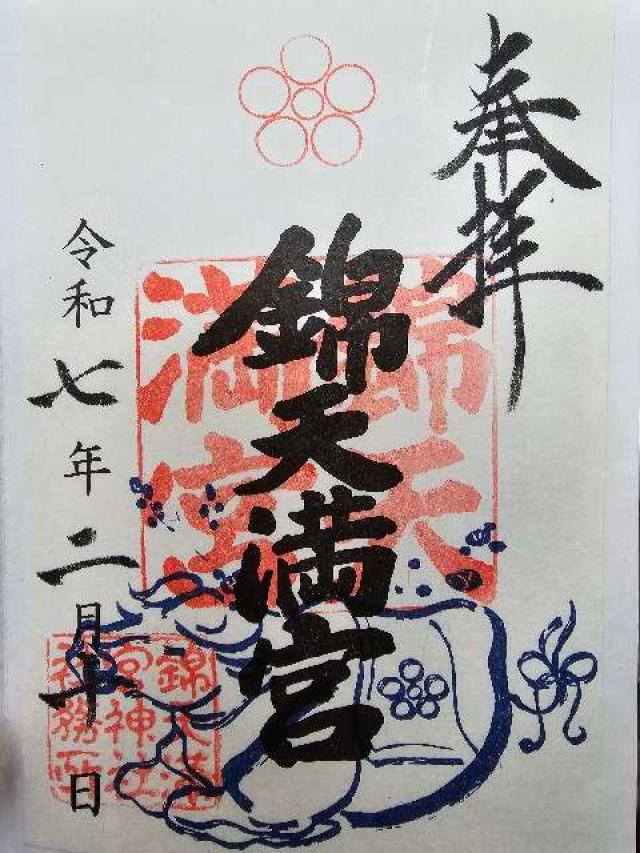 奉拝
錦天満宮
錦天満宮
令和七年二月十日
錦天満
宮神社
務所